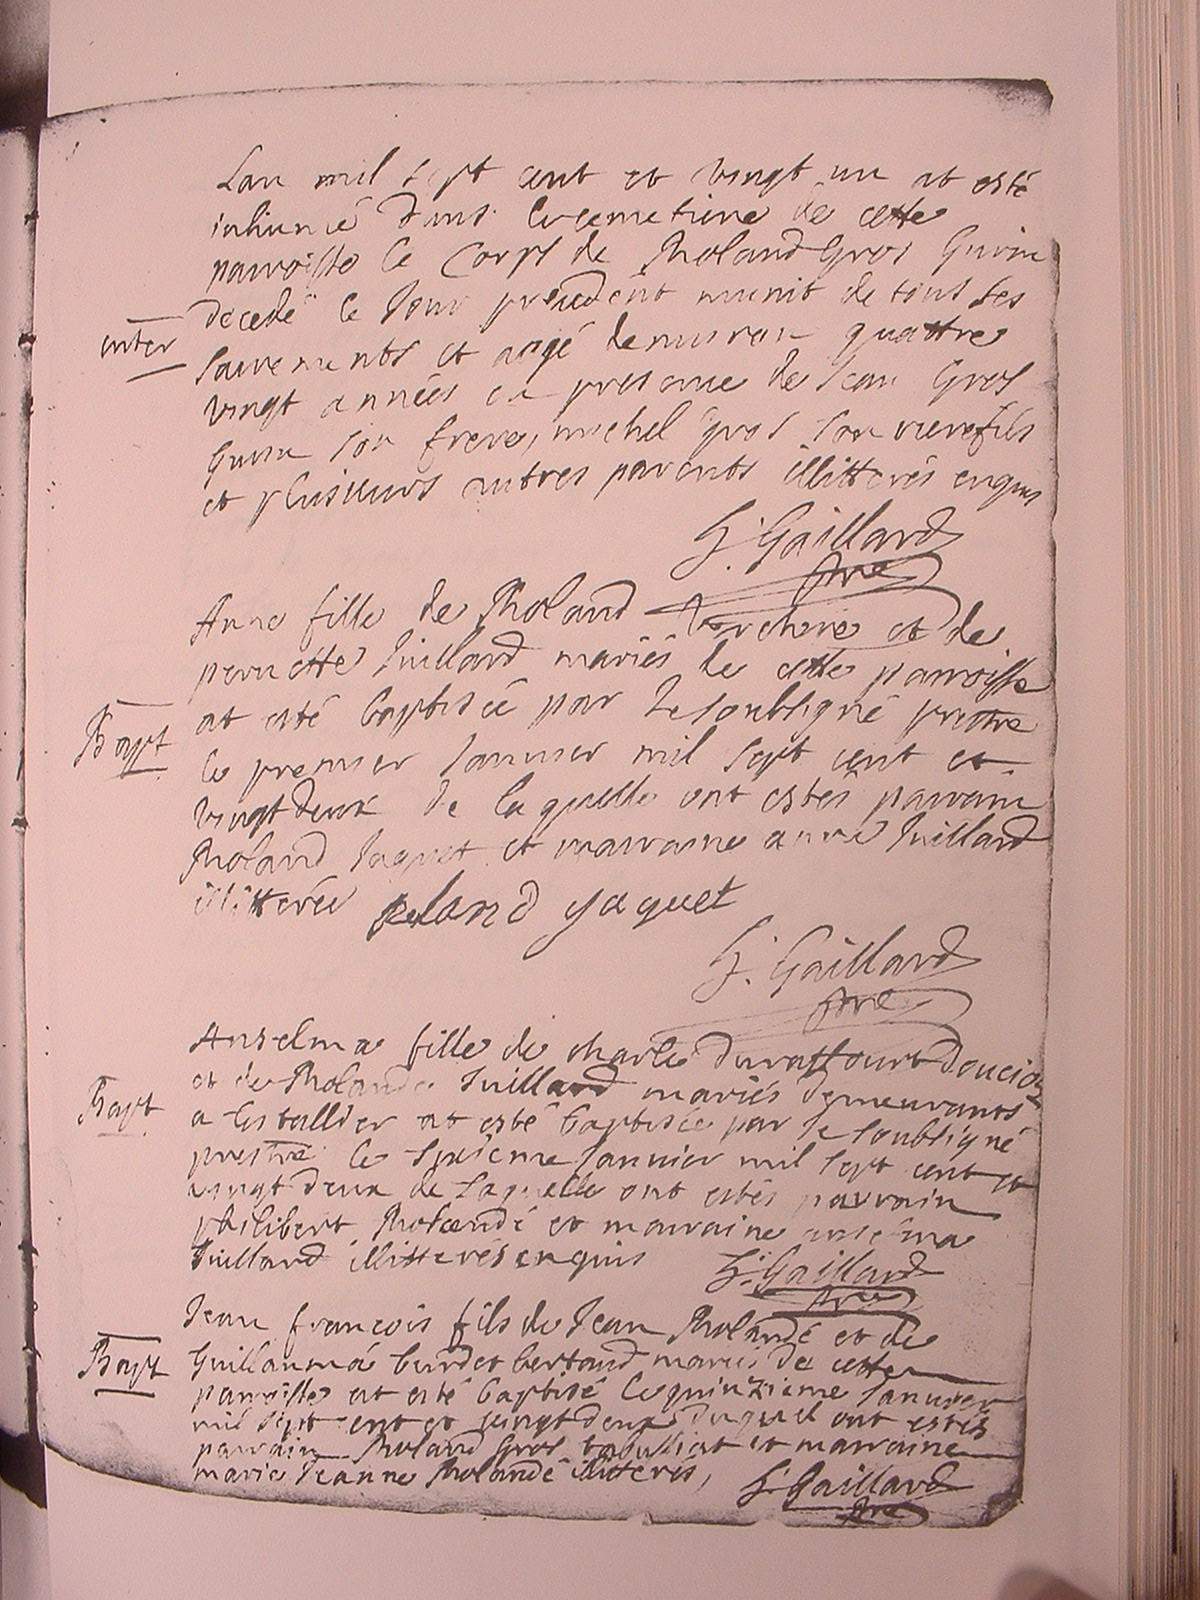 Lan mil sept cent et vingt un at esté
inhumé dans le cemetiere de cette
parroisse le corps de Roland Gros Gurin
decedé le jour precedent munit de tous ses
enter
sacrements et aagé denviron quattre
vingt années en presence de Jean Gros
Gurin son frere, michel gros son
et plusieurs autres parents illitterés enquis
Gaillard
ptre
Anne fille de Roland Verchere et de
pernette Juillard mariés de cette parroisse
at esté baptisée par le soubsigné prestre
Bapt
le premier Janvier mil sept cent et
vingt deux de laquelle ont estés parrain
Roland Jaquet et marraine anne Juillard
illitterée Roland yaquet
Gaillard
ptre
Anselma fille de charle Duraffourt Doucion
et de Rolande Juillard mariés demeurants
Bapt
a Lestallier at esté baptisée par le soubsigné
prestre le sixieme Janvier mil sept cent et
vingt deux de laquelle ont estés parrain
philibert Rolandé et marraine anselma
Juillard illitterés enquis Gaillard
ptre
Jean francois fils de Jean Rolandé et de
Bapt
Guillauma burdet bertrand mariés de cette
parroisse at esté baptisé le quinzieme Janvier
mil sept cent et vingt deux duquel ont estés
parrain Roland Gros et marraine
marie Jeanne Rolandé illitterés, Gaillard
ptre